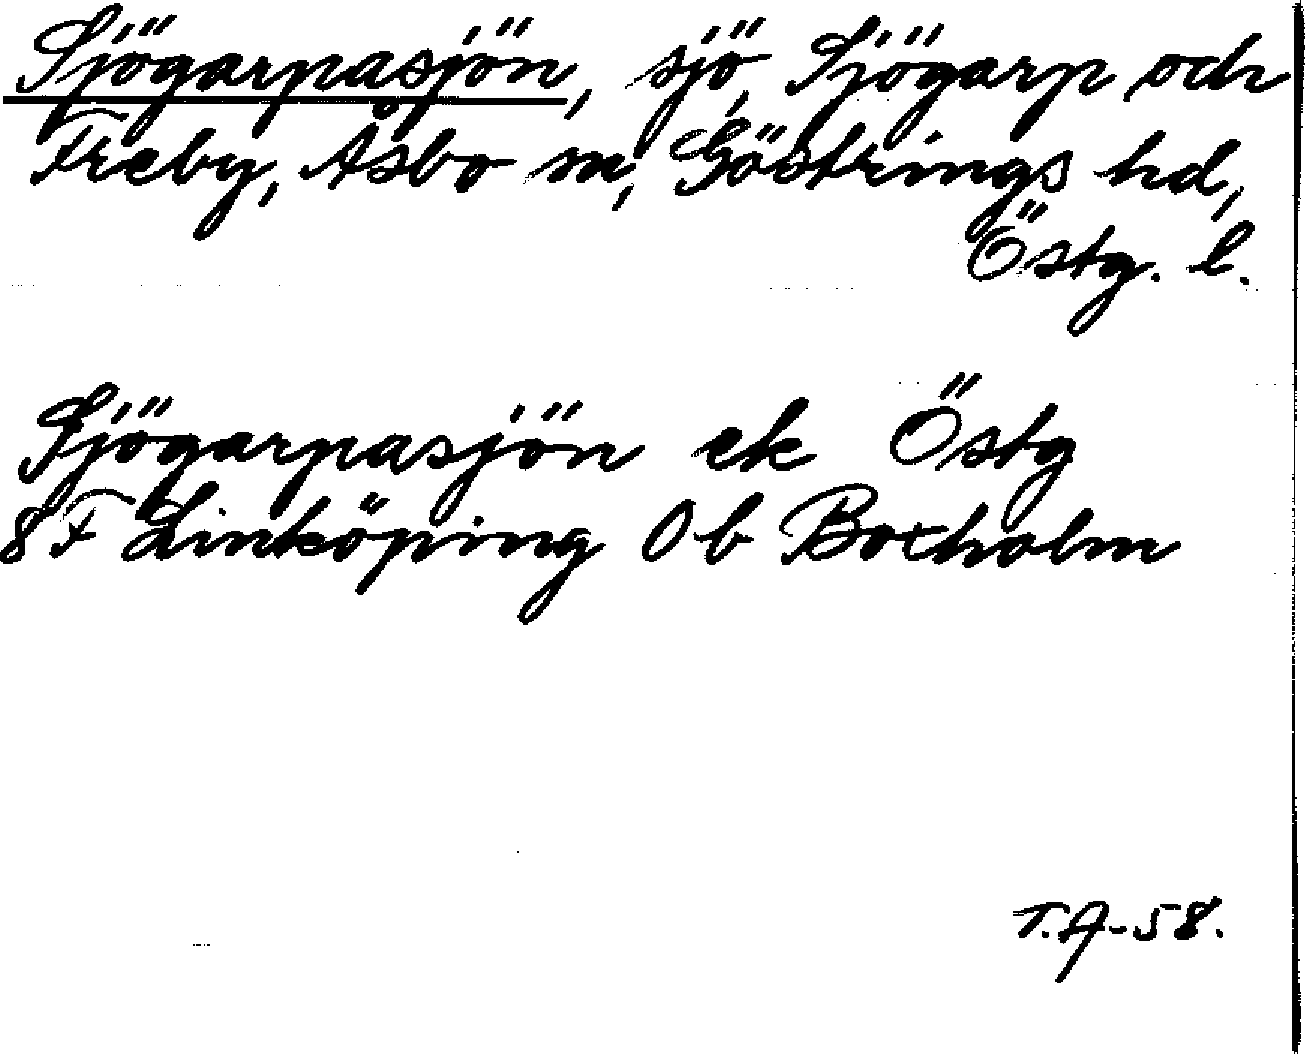 Sjögarpasjön, sjö, Sjögarp och
Freby, Åsbo sn, Göstrings hd,
Östg. l.
Sjögarpasjön ek Östg
8F Linköping 0b Boxholm
T.A-58.